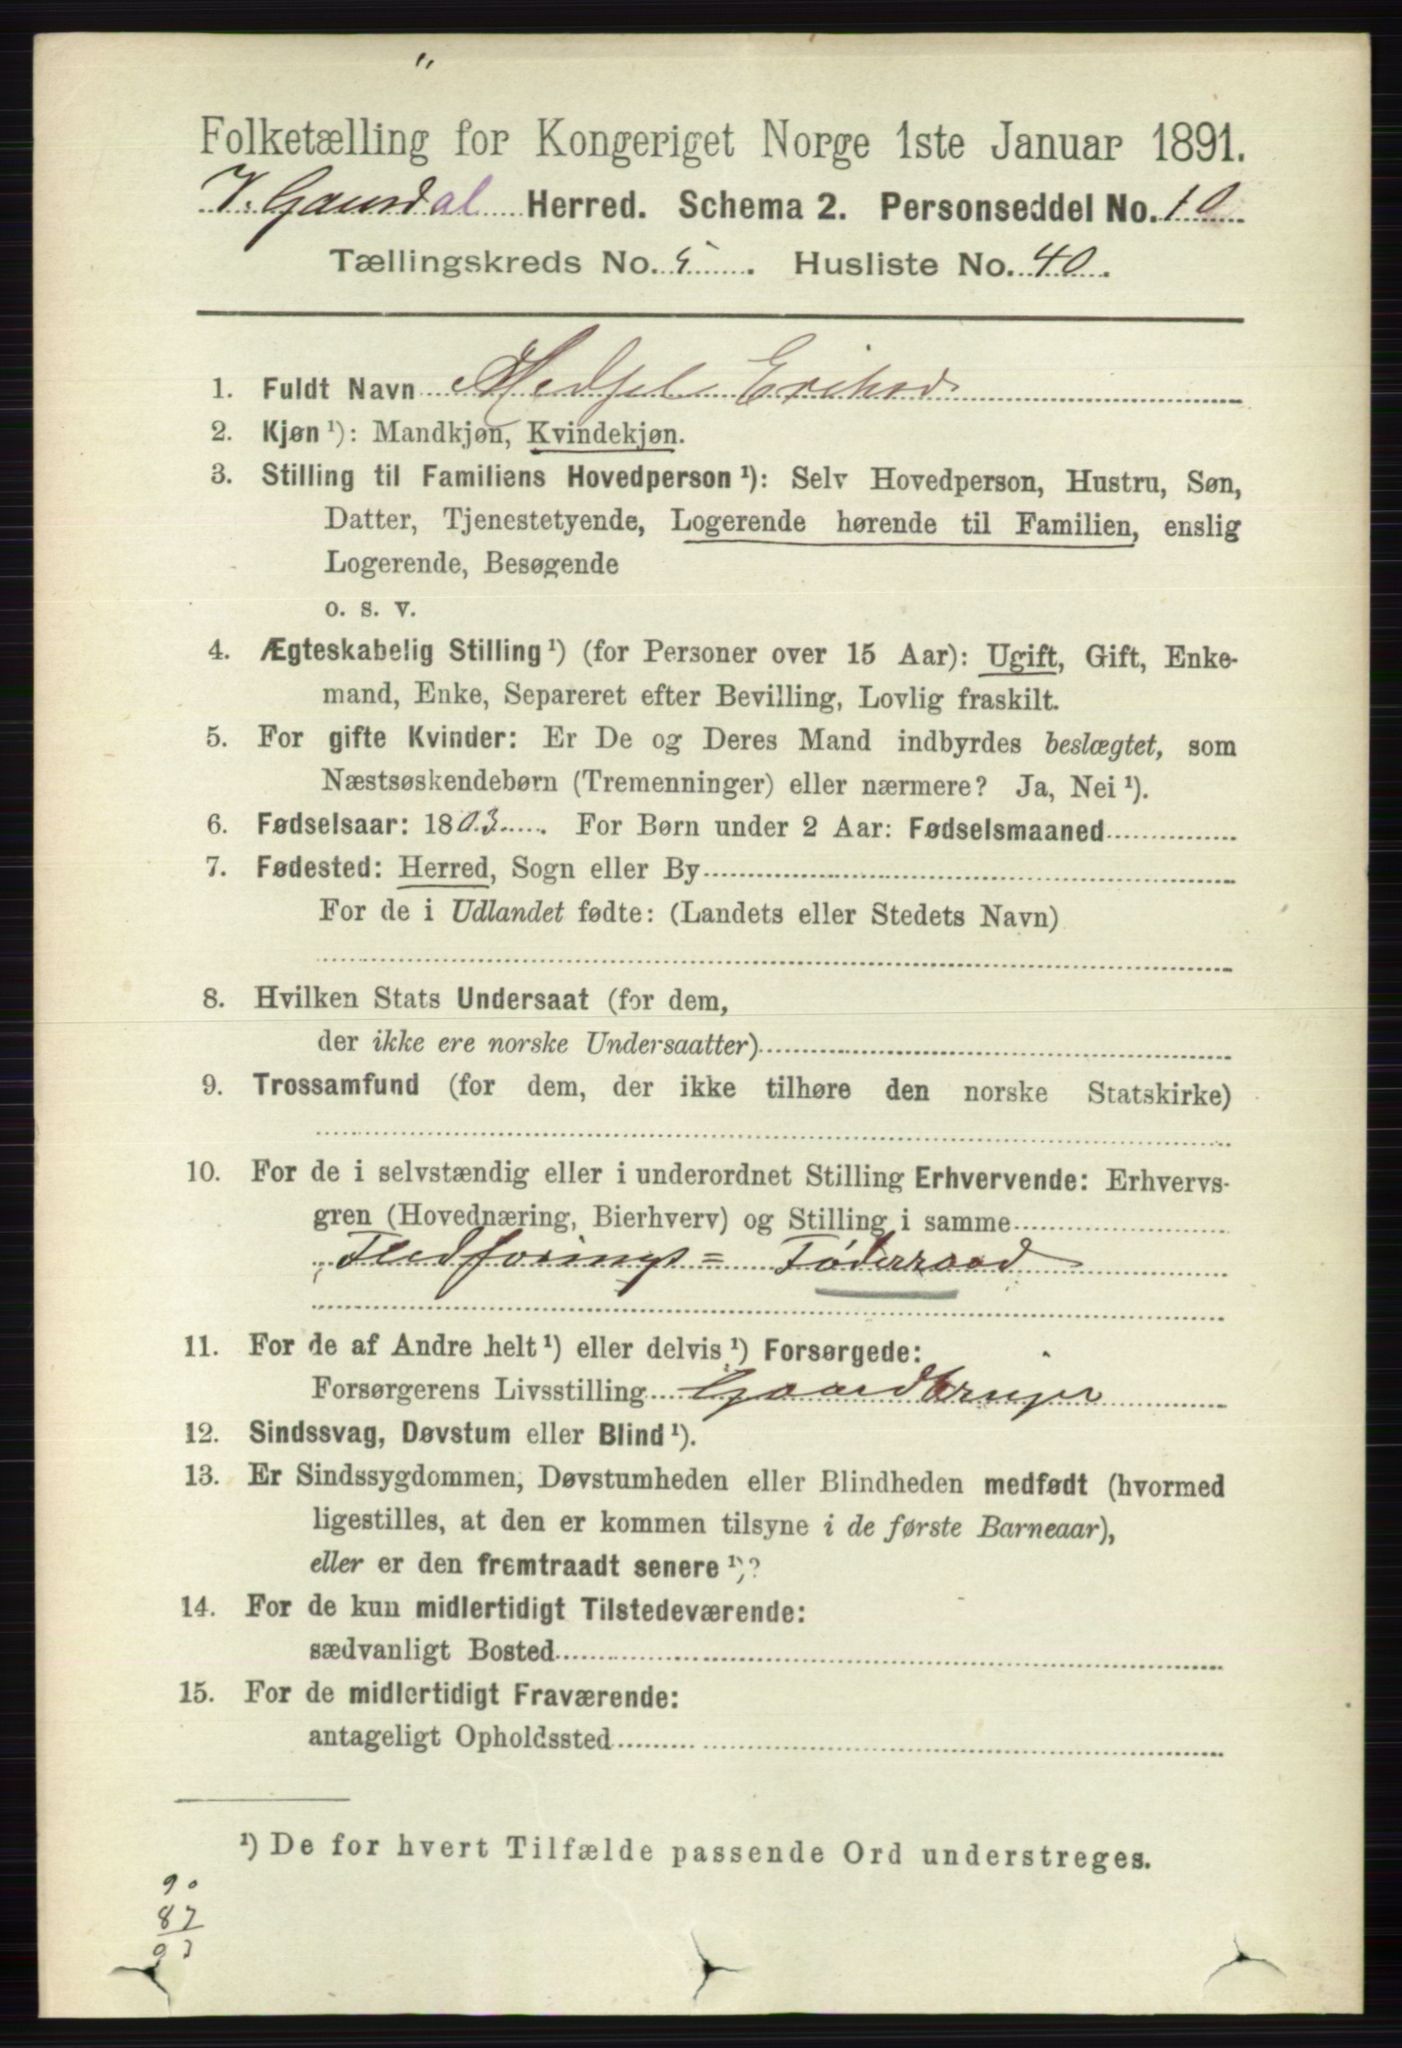 "
Folketælling for Kongeriget Norge 1ste Januar 1891.
V. Gausdal Herred. Schema 2. Personseddel No. 10
Tællingskreds No. 5. Husliste No. 40.
1. Fuldt Navn
2. Kjøn ¹): Mandkjøn, Kvindekjøn.
3. Stilling til Familiens Hovedperson ¹): Selv Hovedperson, Hustru, Søn,
Datter, Tjenestetyende, Logerende hørende til Familien, enslig
Logerende, Besøgende
o. s. v.
4. Ægteskabelig Stilling ¹) (for Personer over 15 Aar): Ugift, Gift, Enke-
mand, Enke, Separeret efter Bevilling, Lovlig fraskilt.
5. For gifte Kvinder: Er De og Deres Mand indbyrdes beslægtet, som
Næstsøskendebørn (Tremenninger) eller nærmere? Ja, Nei ¹).
6. Fødselsaar: 1803. For Børn under 2 Aar: Fødselsmaaned
7. Fødested: Herred, Sogn eller By
For de i Udlandet fødte: (Landets eller Stedets Navn)
8. Hvilken Stats Undersaat (for dem,
der ikke ere norske Undersaatter)
9. Trossamfund (for dem, der ikke tilhøre den norske Statskirke)
10. For de i selvstændig eller i underordnet Stilling Erhvervende: Erhvervs-
gren (Hovednæring, Bierhverv) og Stilling i samme
Fledførings = Føderaad
11. For de af Andre helt ¹) eller delvis ¹) Forsørgede:
Forsørgerens Livsstilling Gaardbruger
12. Sindssvag, Døvstum eller Blind ¹).
13. Er Sindssygdommen, Døvstumheden eller Blindheden medfødt (hvormed
ligestilles, at den er kommen tilsyne i de første Barneaar),
eller er den fremtraadt senere ¹)?
14. For de kun midlertidigt Tilstedeværende:
sædvanligt Bosted
15. For de midlertidigt Fraværende:
antageligt Opholdssted
¹) De for hvert Tilfælde passende Ord understreges.
90
87
93